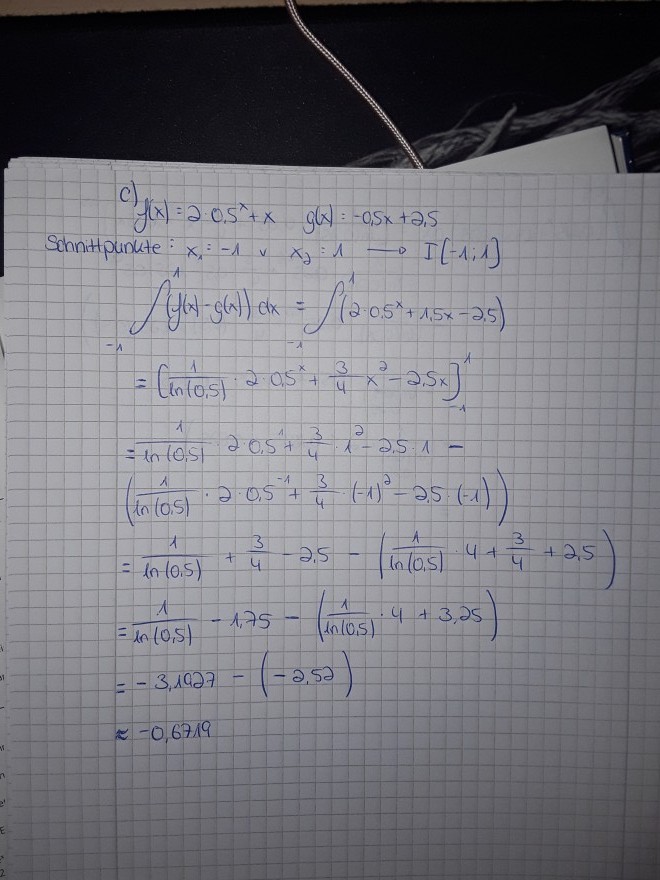 c) f(x) = 2·0,5^x + x g(x) = -0,5x + 2,5
Schnittpunkte: x₁ = -1 v x₂ = 1 → I[-1; 1]
∫₋₁¹ (f(x) - g(x)) dx = ∫₋₁¹ (2·0,5^x + 1,5x - 2,5)
= [1/ln(0,5) · 2·0,5^x + 3/4 x² - 2,5x]₋₁¹
= 1/ln(0,5) · 2·0,5¹ + 3/4 · 1² - 2,5·1 -
(1/ln(0,5) · 2·0,5⁻¹ + 3/4 · (-1)² - 2,5·(-1))
= 1/ln(0,5) + 3/4 - 2,5 - (1/ln(0,5) · 4 + 3/4 + 2,5)
= 1/ln(0,5) - 1,75 - (1/ln(0,5) · 4 + 3,25)
= -3,1927 - (-2,52)
≈ -0,6719